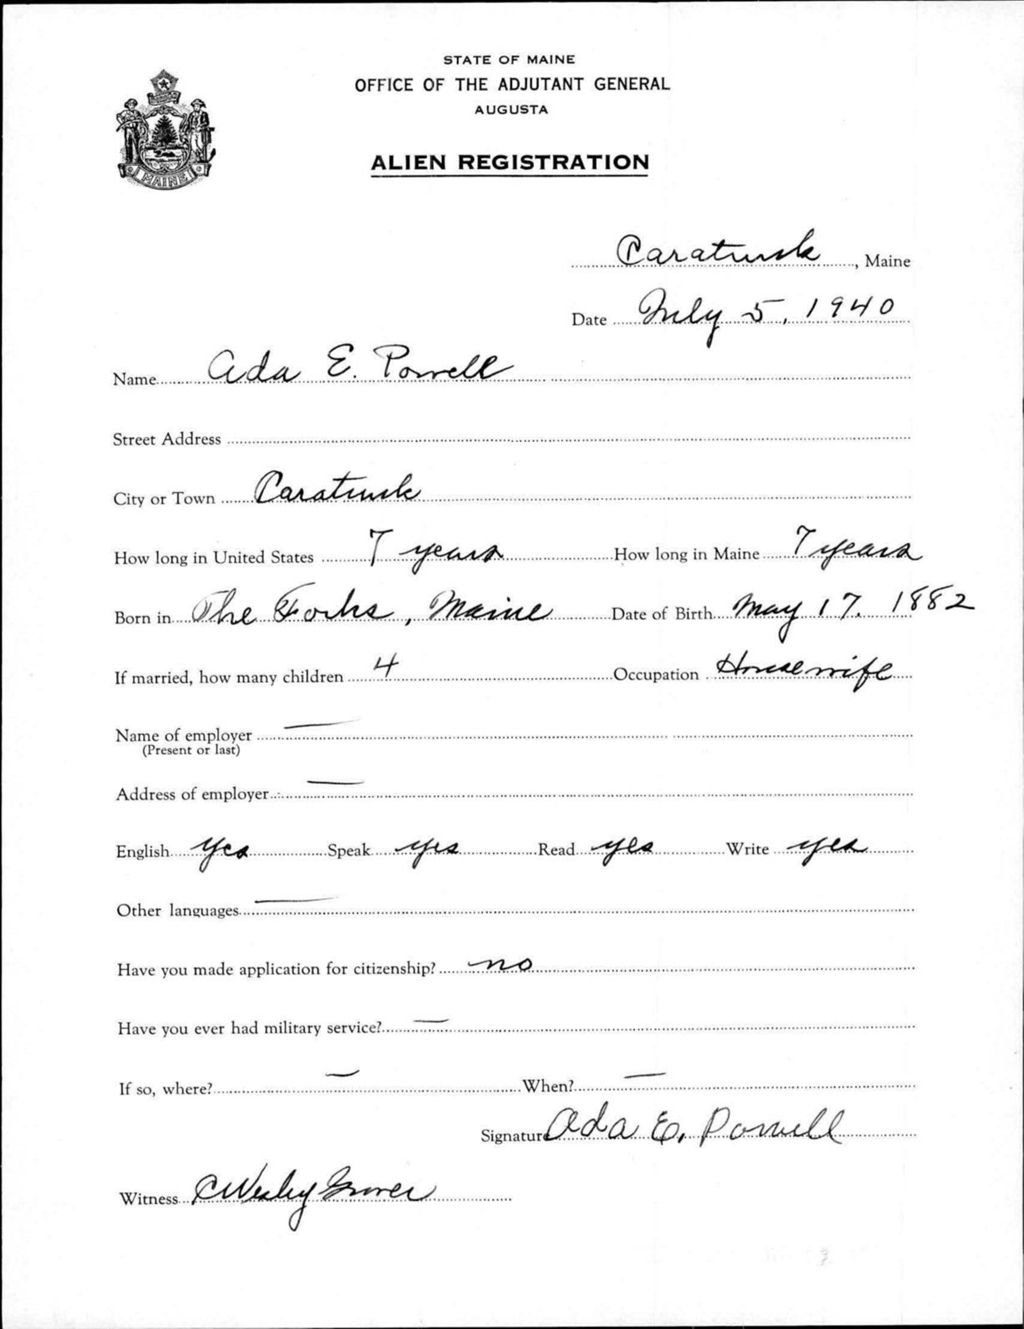 STATE OF MAINE
OFFICE OF THE ADJUTANT GENERAL
AUGUSTA
ALIEN REGISTRATION
MAINE
Caratunk, Maine
Date July 5, 1940
Name Ada E. Powell
Street Address
City or Town Caratunk
How long in United States 7 years How long in Maine 7 years
Born in The Forks, Maine Date of Birth May 17, 1882
If married, how many children 4 Occupation Housewife
Name of employer —
(Present or last)
Address of employer —
English yes Speak yes Read yes Write yes
Other languages —
Have you made application for citizenship? no
Have you ever had military service? —
If so, where? — When? —
Signature Ada E. Powell
Witness C Wesley Grover